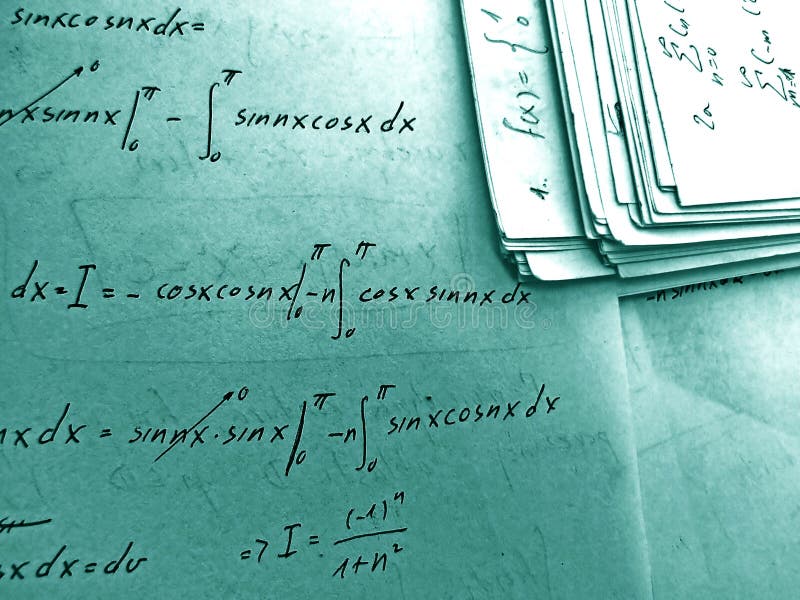 sinxcosnxdx=
nxsinnx|₀^π - ∫₀^π sinnxcosx dx
dx = I = - cosxcosnx|₀^π - n∫₀^π cosx sinnx dx
nx dx = sinnx·sinx|₀^π - n∫₀^π sinxcosnx dx
xdx = dv
=> I = (-1)ⁿ/(1+n²)
1.. f(x) = { 1 0
2a ∑ n=0
dreamstime